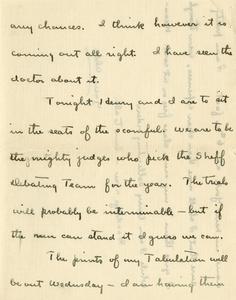 any chances. I think however it is
coming out all right. I have seen the
doctor about it.
Tonight Henry and I are to sit
in the seats of the scornful. We are to be
the mighty judges who pick the Sheff
debating Team for the year. The trials
will probably be interminable – but if
the men can stand it I guess we can.
The prints of my Tabulation will
be out Wednesday – I am having them